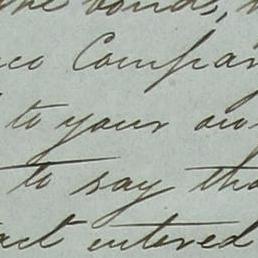 the bonds,
co Compan
to your ow
to say tha
act entered